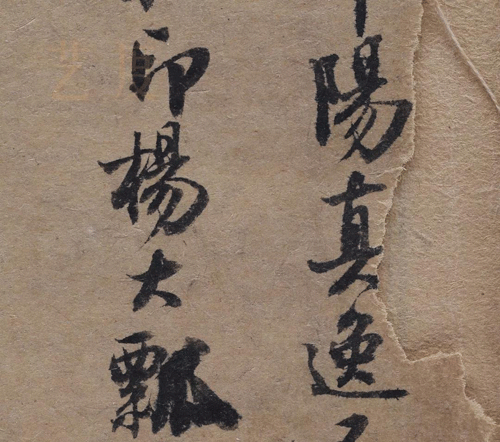 陽真逸
印楊大瓢